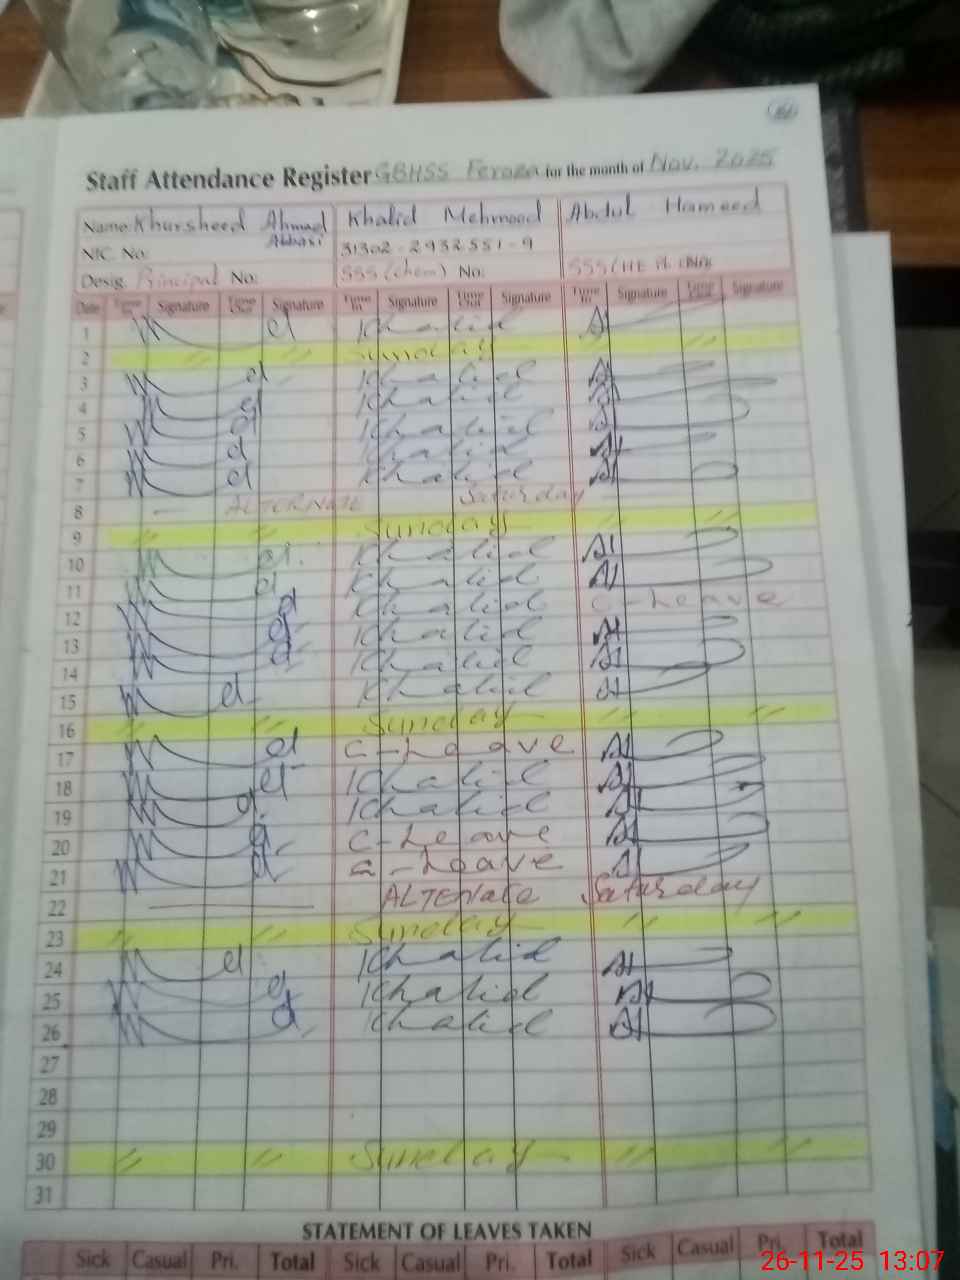 Staff Attendance Register GBHSS Feroza for the month of Nov. 2025
Name Khursheed Ahmad Abbasi Khalid Mehmood Abdul Hameed
NIC. No: 31302-2932551-9
Desig. Principal No: SSS (Chem) No: SSS
Date Time In Signature Time Out Signature Time In Signature Time Out Signature Time In Signature Time Out Signature
1 Khalid
2 Sunday
3 Khalid
4 Khalid
5 Khalid
6 Khalid
7 Khalid
8 ALTERNATE Saturday
9 Sunday
10 Khalid
11 Khalid
12 Khalid C-Leave
13 Khalid
14 Khalid
15 Khalid
16 Sunday
17 C-Leave
18 Khalid
19 Khalid
20 C-Leave
21 C-Leave
22 ALTERNATE Saturday
23 Sunday
24 Khalid
25 Khalid
26 Khalid
27
28
29
30 Sunday
31
STATEMENT OF LEAVES TAKEN
Sick Casual Pri. Total Sick Casual Pri. Total Sick Casual Pri. Total
26-11-25 13:07